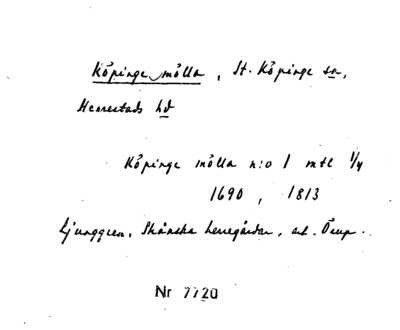 Köpinge mölla, St. Köpinge sn,
Herrestads hd
Köpinge mölla n:o 1 mtl 1/4
1690, 1813
Ljunggren, Skånska herregårdar, art. Örup.
Nr 7720